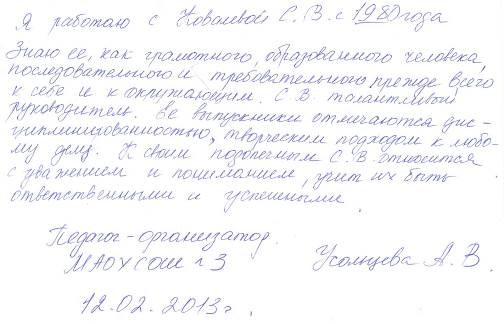 Я работаю с Ковалевой С. В. с 1980 года
Знаю ее, как грамотного, образованного человека,
последовательного и требовательного прежде всего
к себе и к окружающим. С. В. талантливый
руководитель. Ее выпускники отмечаются дис-
циплинированностью, творческим подходом к любо-
му делу. К своим подопечным С. В. относится
с уважением и пониманием, учит их быть
ответственными и успешными.
Педагог-организатор
МАОУ СОШ №3 Усольцева А. В.
12.02.2013г.